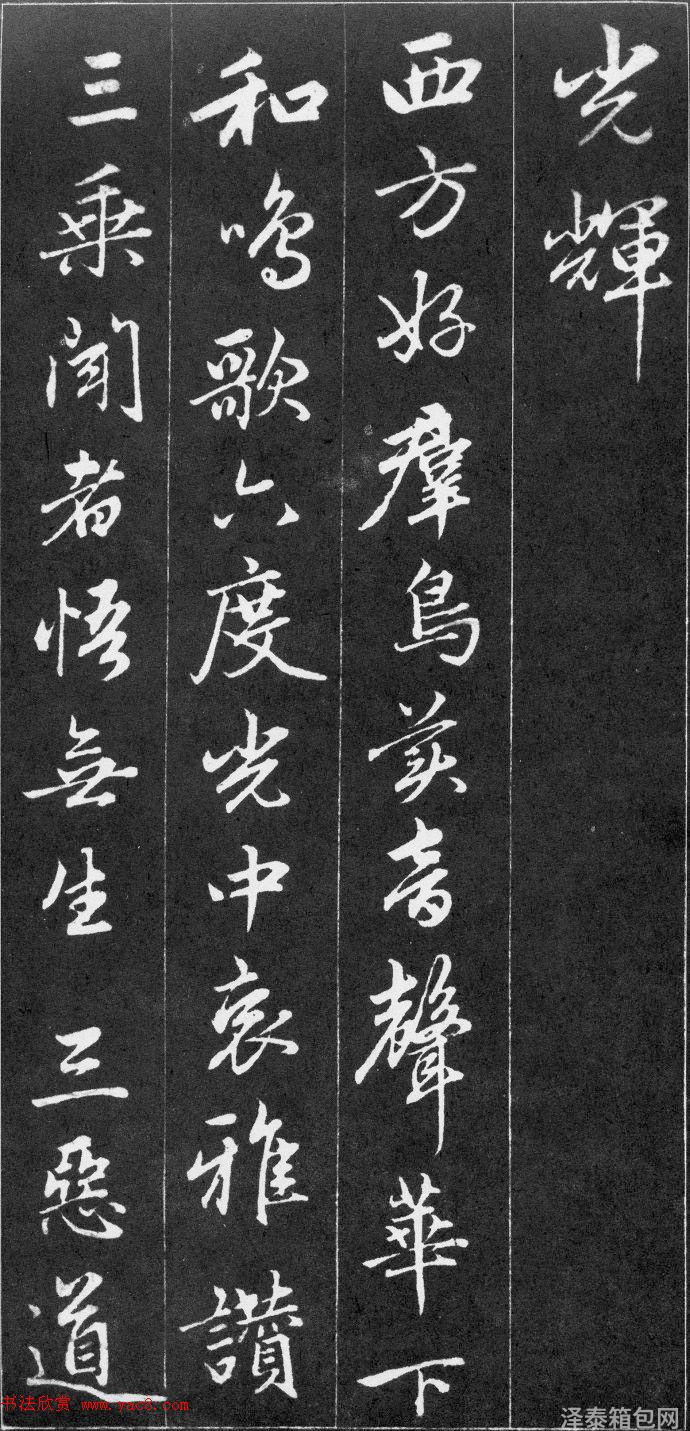 光輝
西方好群鳥美音聲華下
和鳴歌六度光中哀雅讃
三乗聞者悟無生三惡道
书法欣赏 www.yac8.com
泽泰箱包网